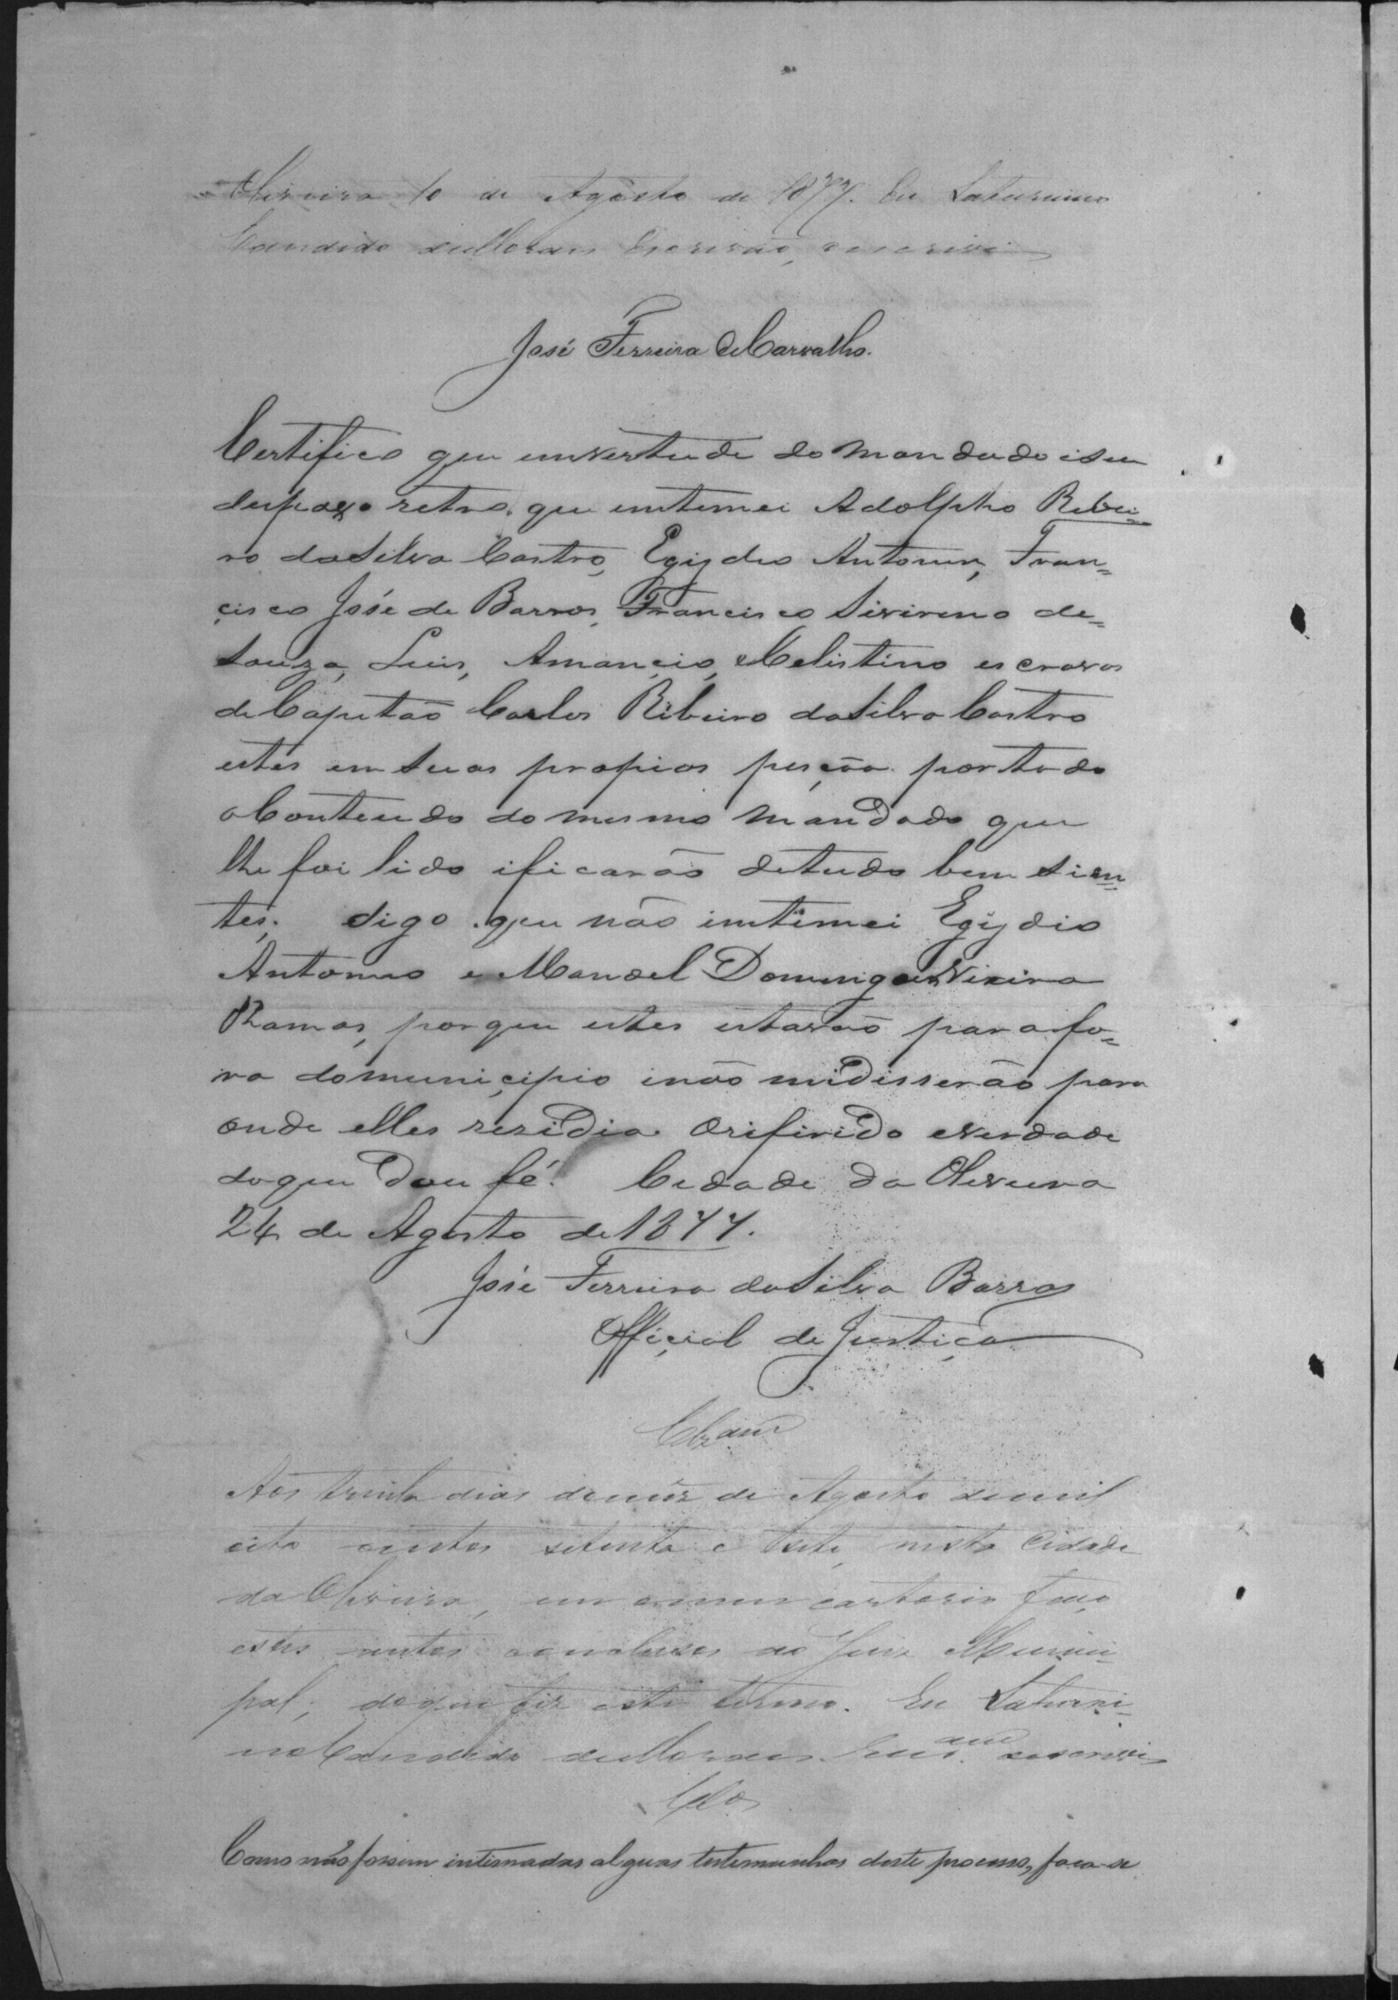 Oliveira 10 de Agosto de 1877. Eu Saturnino
Candido de Moraes Escrivão, o escrivi
José Ferreira de Carvalho.
Certifico que em vertude do mandado e seu
despaxo retro, que intimei Adolpho Ribei=
ro da Silva Castro, Egijdio Antonio, Fran=
cisco José de Barros, Francisco Siverino de=
Souza, Luis, Amancio, e Celistino escravos
de Capitão Carlos Ribeiro da Silva Castro
estes em suas propias peçôa portodo
o Conteudo do mesmo mandado que
lhe foi lido i ficarão de tudo bem sien=
tes. digo que não intimei Egijdio
Antonio e Manoel Domingues Vieira
Ramos, por que estes estavão para fo=
ra do municipio i não mi disserão para
onde elles rezidia O rifirido é verdade
do que Dou fé. Cidade da Oliveira
24 de Agosto de 1877.
José Ferreira da Silva Barros
Official de Justiça
Clzam
Aos trinta dias do mez de Agosto de mil
oito centos setenta e sete, nesta Cidade
da Oliveira, em o meu cartorio faço
estes autos conclusos ao Juiz Munici=
pal. do que fiz este termo. Eu Saturni=
no Candido de Moraes Escrivam escrivi
Clos
Como não fossem intimadas alguas testemunhas deste processo, faça-se